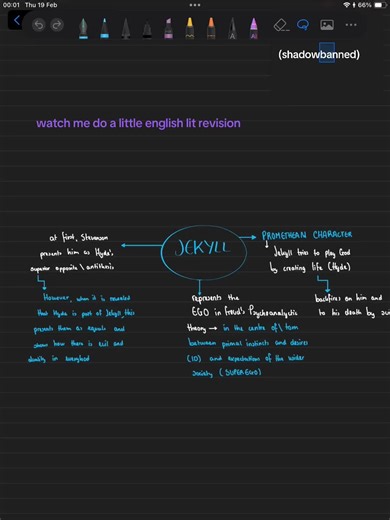 00:01 Thu 19 Feb
66%
(shadowbanned)
watch me do a little english lit revision
JEKYLL
at first, Stevenson
presents him as Hyde's
superior opposite \ antithesis
However, when it is revealed
that Hyde is part of Jekyll, this
presents them as equals and
show how there is evil and
duality in everybody
Represents the
EGO in Freud's Psychoanalytic
theory → in the centre of \ torn
between primal instincts and desires
(ID) and expectations of the wider
society (SUPEREGO)
PROMETHEAN CHARACTER
Jekyll tries to play God
by creating life (Hyde)
backfires on him and
to his death by